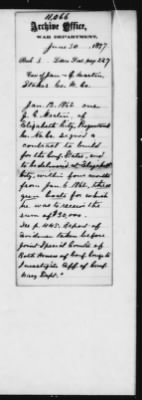 11,066
Archive Office,
WAR DEPARTMENT,
June 30 1887
Book 1
Case of Jam. G. Martin,
Stokes Co. N. C.
Jan. 13. 1862 one
J. G. Martin, of
Elizabeth City, Pasquotank
Co. No. Ca. signed a
contract to build
for the Conf. States, and
to be delivered at Elizabeth
City, within four months
from Jan. 6. 1862, three
gun boats for which
he was to receive the
sum of $30,000.
See p. 445. Report of
evidence taken before
Joint Special Comte of
Both Houses of Conf. Congs to
Investigate Aff. of Conf.
Navy Dept."